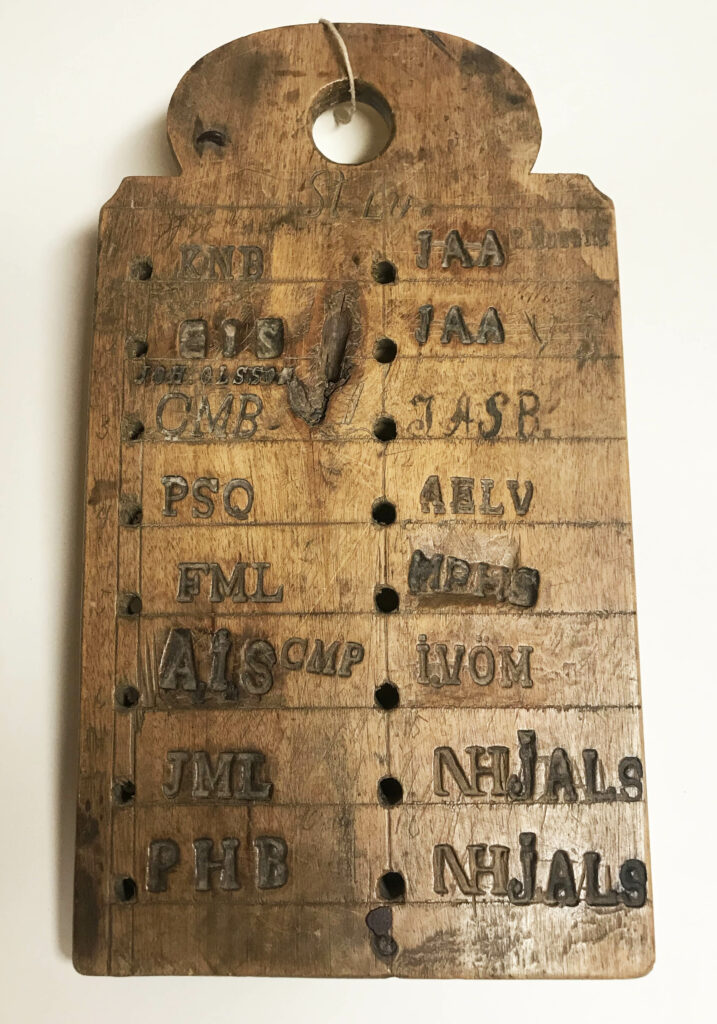 KNB JAA
EIS JAA
JOH. OLSSON
CMB JASB.
PSQ AELV
FML MPHS
AİS CMP İ.VÖM
JML NHJALS
PHB NHJALS